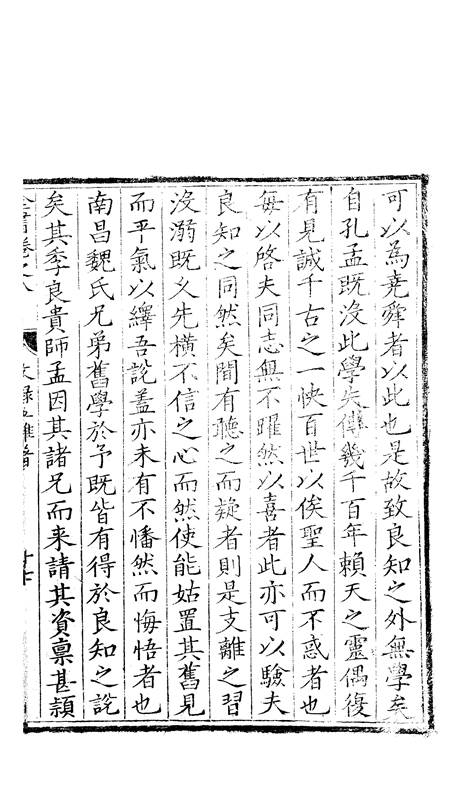 可以為堯舜者以此也是故致良知之外無學矣
自孔孟既沒此學失傳幾千百年賴天之靈偶復
有見誠千古之一快百世以俟聖人而不惑者也
每以啓夫同志無不躍然以喜者此亦可以驗夫
良知之同然矣間有聽之而疑者則是支離之習
沒溺既久先橫不信之心而然使能姑置其舊見
而平氣以繹吾說蓋亦未有不憣然而悔悟者也
南昌魏氏兄弟舊學於予既皆有得於良知之說
矣其季良貴師孟因其諸兄而来請其資禀甚頴
全書卷之八